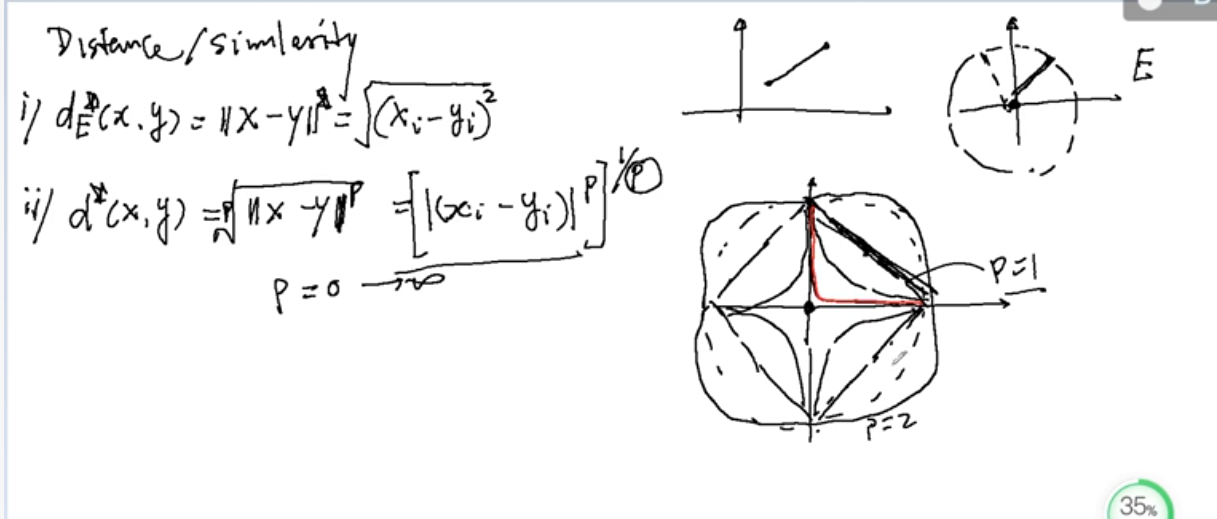 Distance/similarity
i/ d_E(x,y) = ||x-y|| = √(x_i-y_i)²
E
ii/ d(x,y) = ᵖ√||x-y||^p = [|(x_i-y_i)|^p]^1/p
p=0 → ∞
p=1
p=2
35%